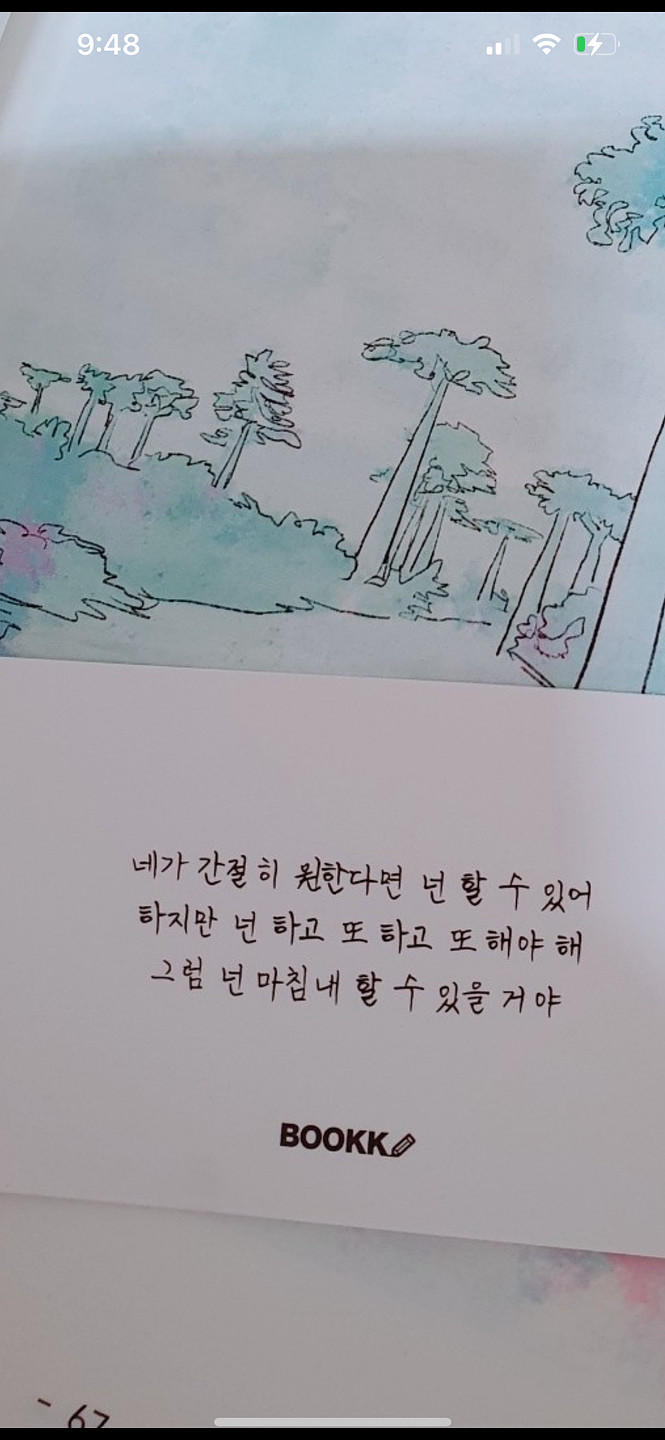 9:48
네가 간절히 원한다면 넌 할 수 있어
하지만 넌 하고 또 하고 또 해야 해
그럼 넌 마침내 할 수 있을 거야
BOOKK
- 67